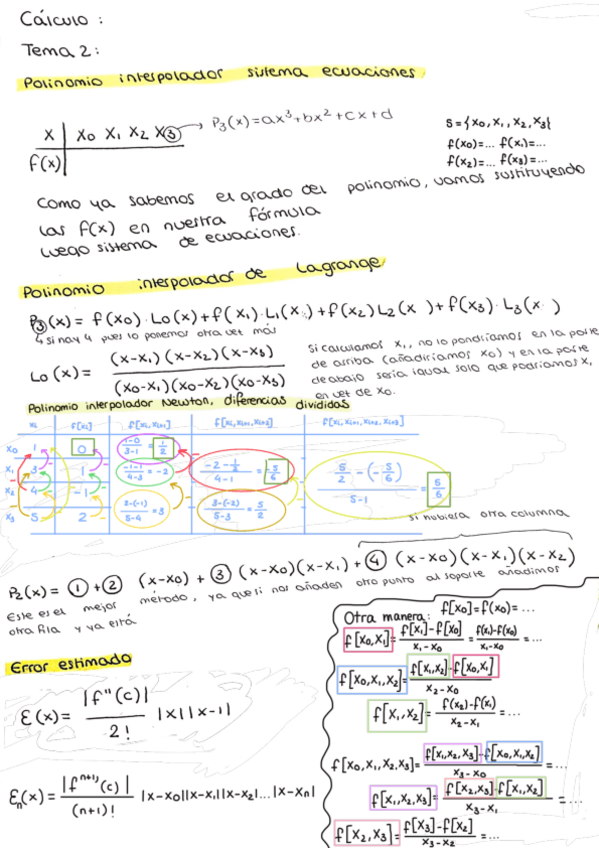 Cálculo:
Tema 2:
Polinomio interpolador sistema ecuaciones
x | x₀ x₁ x₂ x③ → P₃(x)=ax³+bx²+cx+d
f(x)
S={x₀,x₁,x₂,x₃}
f(x₀)=... f(x₁)=...
f(x₂)=... f(x₃)=...
Como ya sabemos el grado del polinomio, vamos sustituyendo
las f(x) en nuestra fórmula
Luego sistema de ecuaciones.
Polinomio interpolador de Lagrange
P③(x) = f(x₀)·L₀(x)+f(x₁)·L₁(x)+f(x₂)L₂(x)+f(x₃)·L₃(x)
4 si hay 4 pues lo ponemos otra vez más
L₀(x) = (x-x₁)(x-x₂)(x-x₃) / (x₀-x₁)(x₀-x₂)(x₀-x₃)
Si calculamos x₁, no lo pondríamos en la parte
de arriba (añadiríamos x₀) y en la parte
de abajo sería igual solo que podríamos x₁
en vez de x₀.
Polinomio interpolador Newton, diferencias divididas
xᵢ f[xᵢ] f[xᵢ,xᵢ₊₁] f[xᵢ,xᵢ₊₁,xᵢ₊₂] f[xᵢ,xᵢ₊₁,xᵢ₊₂,xᵢ₊₃]
x₀ 1 0 1-0/3-1 = 1/2
x₁ 3 1 -1-1/4-3 = -2 -2-1/2 / 4-1 = -5/6
x₂ 4 -1 2-(-1)/5-4 = 3 3-(-2)/5-3 = 5/2
x₃ 5 2
5/2 - (-5/6) / 5-1 = 5/6
si hubiera otra columna
P₂(x) = ① + ② (x-x₀) + ③ (x-x₀)(x-x₁) + ④ (x-x₀)(x-x₁)(x-x₂)
Este es el mejor método, ya que si nos añaden otro punto al soporte añadimos
otra fila y ya está
Error estimado
ε(x) = |f''(c)| / 2! |x||x-1|
εₙ(x) = |fⁿ⁺¹⁾(c)| / (n+1)! |x-x₀||x-x₁||x-x₂|...|x-xₙ|
Otra manera: f[x₀]=f(x₀)=...
f[x₀,x₁] = f[x₁]-f[x₀] / x₁-x₀ = f(x₁)-f(x₀) / x₁-x₀ = ...
f[x₀,x₁,x₂] = f[x₁,x₂]-f[x₀,x₁] / x₂-x₀
f[x₁,x₂] = f(x₂)-f(x₁) / x₂-x₁ = ...
f[x₀,x₁,x₂,x₃] = f[x₁,x₂,x₃]-f[x₀,x₁,x₂] / x₃-x₀ = ...
f[x₁,x₂,x₃] = f[x₂,x₃]-f[x₁,x₂] / x₃-x₁ = ...
f[x₂,x₃] = f[x₃]-f[x₂] / x₃-x₂ = ...